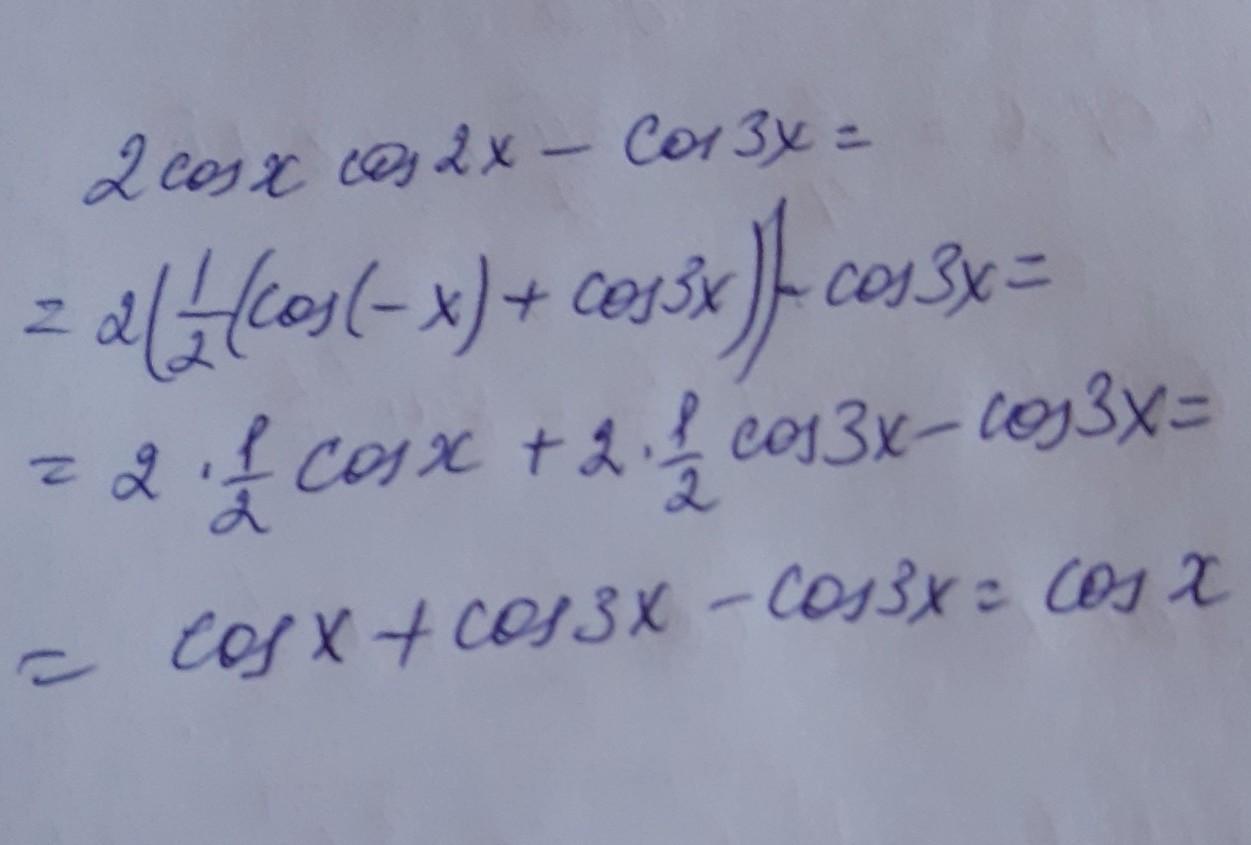 2 cos x cos 2x − cos 3x =
= 2(1/2(cos(−x) + cos3x)) − cos3x =
= 2 · 1/2 cos x + 2 · 1/2 cos3x − cos3x =
= cos x + cos3x − cos3x = cos x